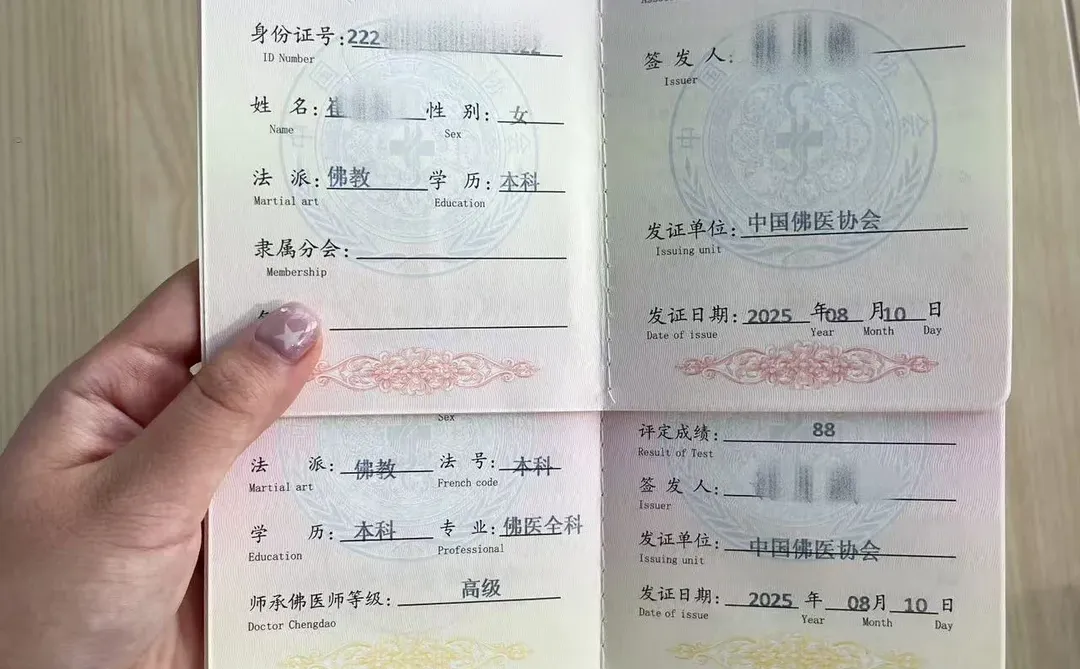 身份证号:222
ID Number
姓 名:崔 性 别:女
Name Sex
法 派:佛教 学 历:本科
Martial art Education
隶属分会:
Membership
签 发 人:
Issuer
发证单位:中国佛医协会
Issuing unit
发证日期:2025 年08 月10 日
Date of issue Year Month Day
Sex
法 派:佛教 法 号:本科
Martial art French code
学 历:本科 专 业:佛医全科
Education Professional
师承佛医师等级:高级
Doctor Chengdao
评定成绩:88
Result of Test
签 发 人:
Issuer
发证单位:中国佛医协会
Issuing unit
发证日期:2025 年 08月 10 日
Date of issue Year Month Day